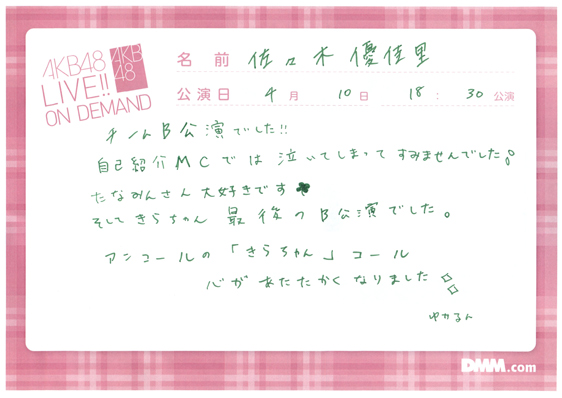 AKB48
LIVE!!
ON DEMAND
AKB
48
名前 佐々木優佳里
公演日 4月 10日 18:30公演
チームB公演でした!!
自己紹介MCでは泣いてしまってすみませんでした。
たなみんさん大好きです♣
そしてきらちゃん最後のB公演でした。
アンコールの「きらちゃん」コール
心があたたかくなりました
ゆかるん
DMM.com